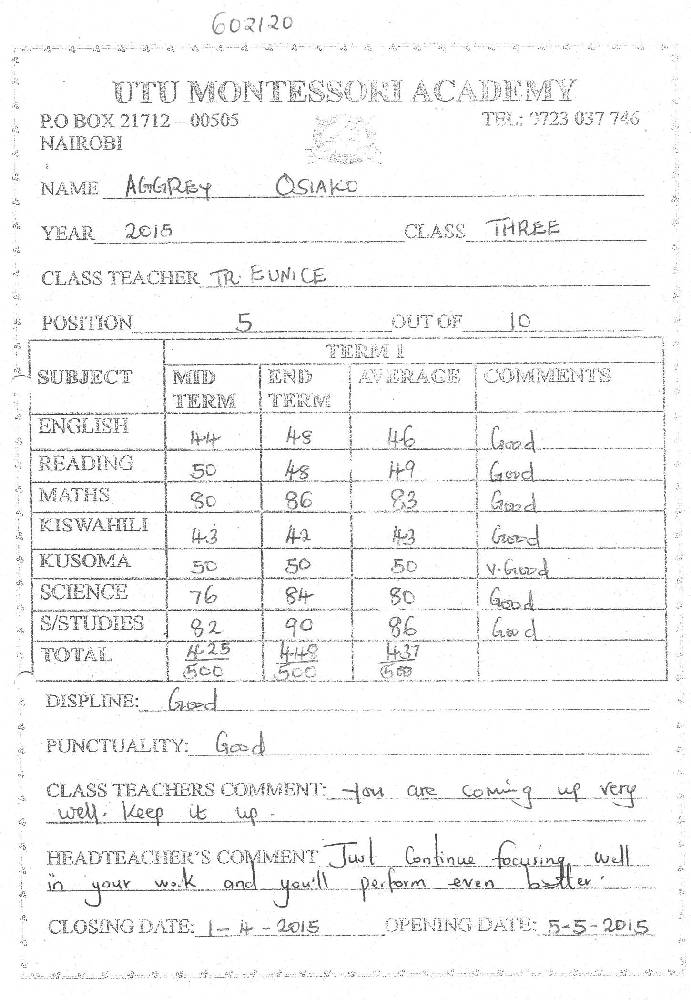 602120
UTU MONTESSORI ACADEMY
P.O BOX 21712 00505 TEL: 0723 037 746
NAIROBI
NAME AGGREY OSIAKO
YEAR 2015 CLASS THREE
CLASS TEACHER TR. EUNICE
POSITION 5 OUT OF 10
TERM 1
SUBJECT MID TERM END TERM AVERAGE COMMENTS
ENGLISH 44 48 46 Good
READING 50 48 49 Good
MATHS 80 86 83 Good
KISWAHILI 43 42 43 Good
KUSOMA 50 50 50 V. Good
SCIENCE 76 84 80 Good
S/STUDIES 82 90 86 Good
TOTAL 425/500 448/500 437/500
DISPLINE: Good
PUNCTUALITY: Good
CLASS TEACHERS COMMENT: You are coming up very
well. Keep it up.
HEADTEACHER'S COMMENT Just Continue focusing well
in your work and you'll perform even better.
CLOSING DATE: 1-4-2015 OPENING DATE: 5-5-2015